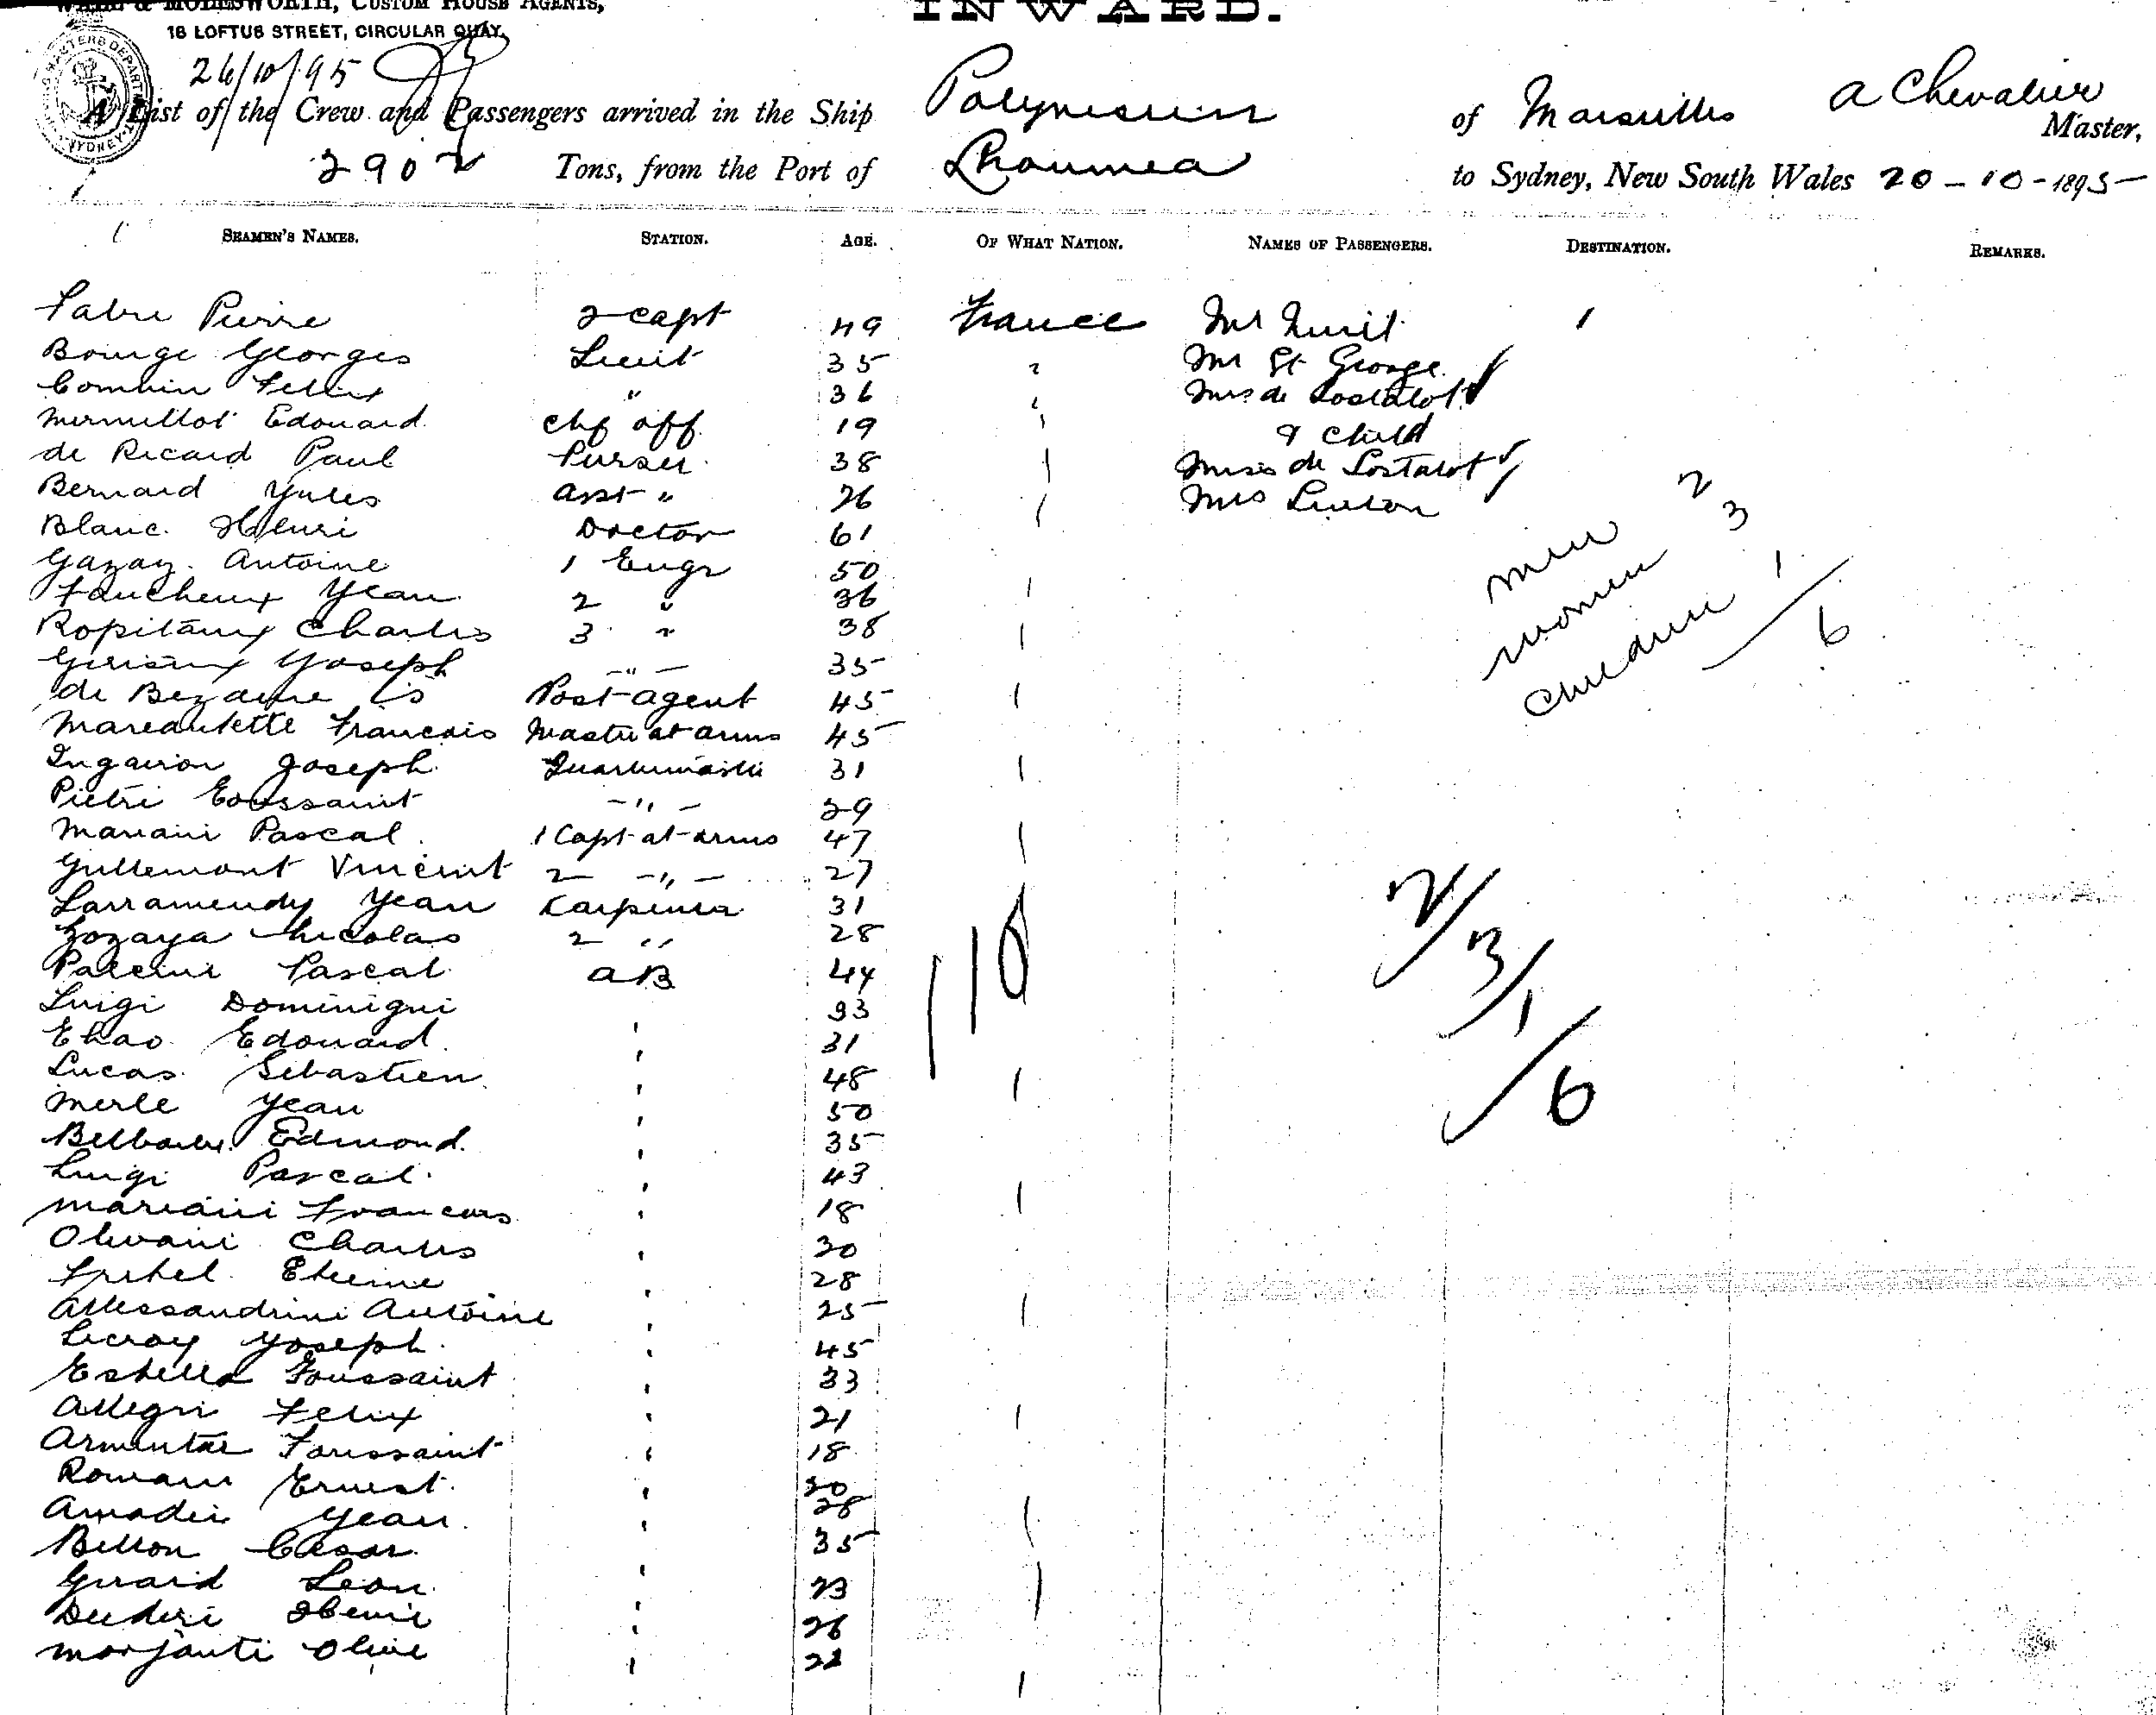 & MOLESWORTH, CUSTOM HOUSE AGENTS,
18 LOFTUS STREET, CIRCULAR QUAY,
INWARD.
26/10/95
A List of the Crew and Passengers arrived in the Ship Polynesien of Marseilles A Chevalier Master,
2902 Tons, from the Port of Nhoumea to Sydney, New South Wales 20-10-1895
SEAMEN'S NAMES. STATION. AGE. OF WHAT NATION. NAMES OF PASSENGERS. DESTINATION. REMARKS.
Fabre Pierre 2 Capt 49 France Mr
Bouige Georges Lieut 35 " Mr St George
Felix " 36 Mrs de Lostalot
Mermillot Edouard Chf off. 19 & Child
de Ricard Paul Purser 38 Miss de Lostalot
Bernard Yules Asst " 26 Mrs
Blanc Henri Doctor 61
Gazay Antoine 1 Engr 50
Faucheux Yean 2 " 36
Ropitaux Charles 3 " 38
Yoseph -"- 35
de Post agent 45
Francois Master at arms 45
Joseph Quartermaster 31
Pietri Toussaint -"- 29
Mariani Pascal 1 Capt at arms 47
Gullemont Vincent 2 -"- 27
Larramendy Yean Carpenter 31
Zozaya Nicolas 2 " 28
Pascal AB 44
Luigi Dominiqui 33
Edouard 31
Lucas Sebastien 48
Merle Yean 50
Edmond 35
Luigi Pascal 43
Mariani Francois 18
Olivani Charles 30
Etienne 28
Allessandrini Antoine 25
Leroy Yoseph 45
Estella Toussaint 33
Allegri Felix 21
Toussaint 18
Romani Ernest 30
Amadei Yean 28
Bellon Cesar 35
Girard Leon 23
26
Olive 22
men 2
women 3
children 1
6
110
2/3/1/6